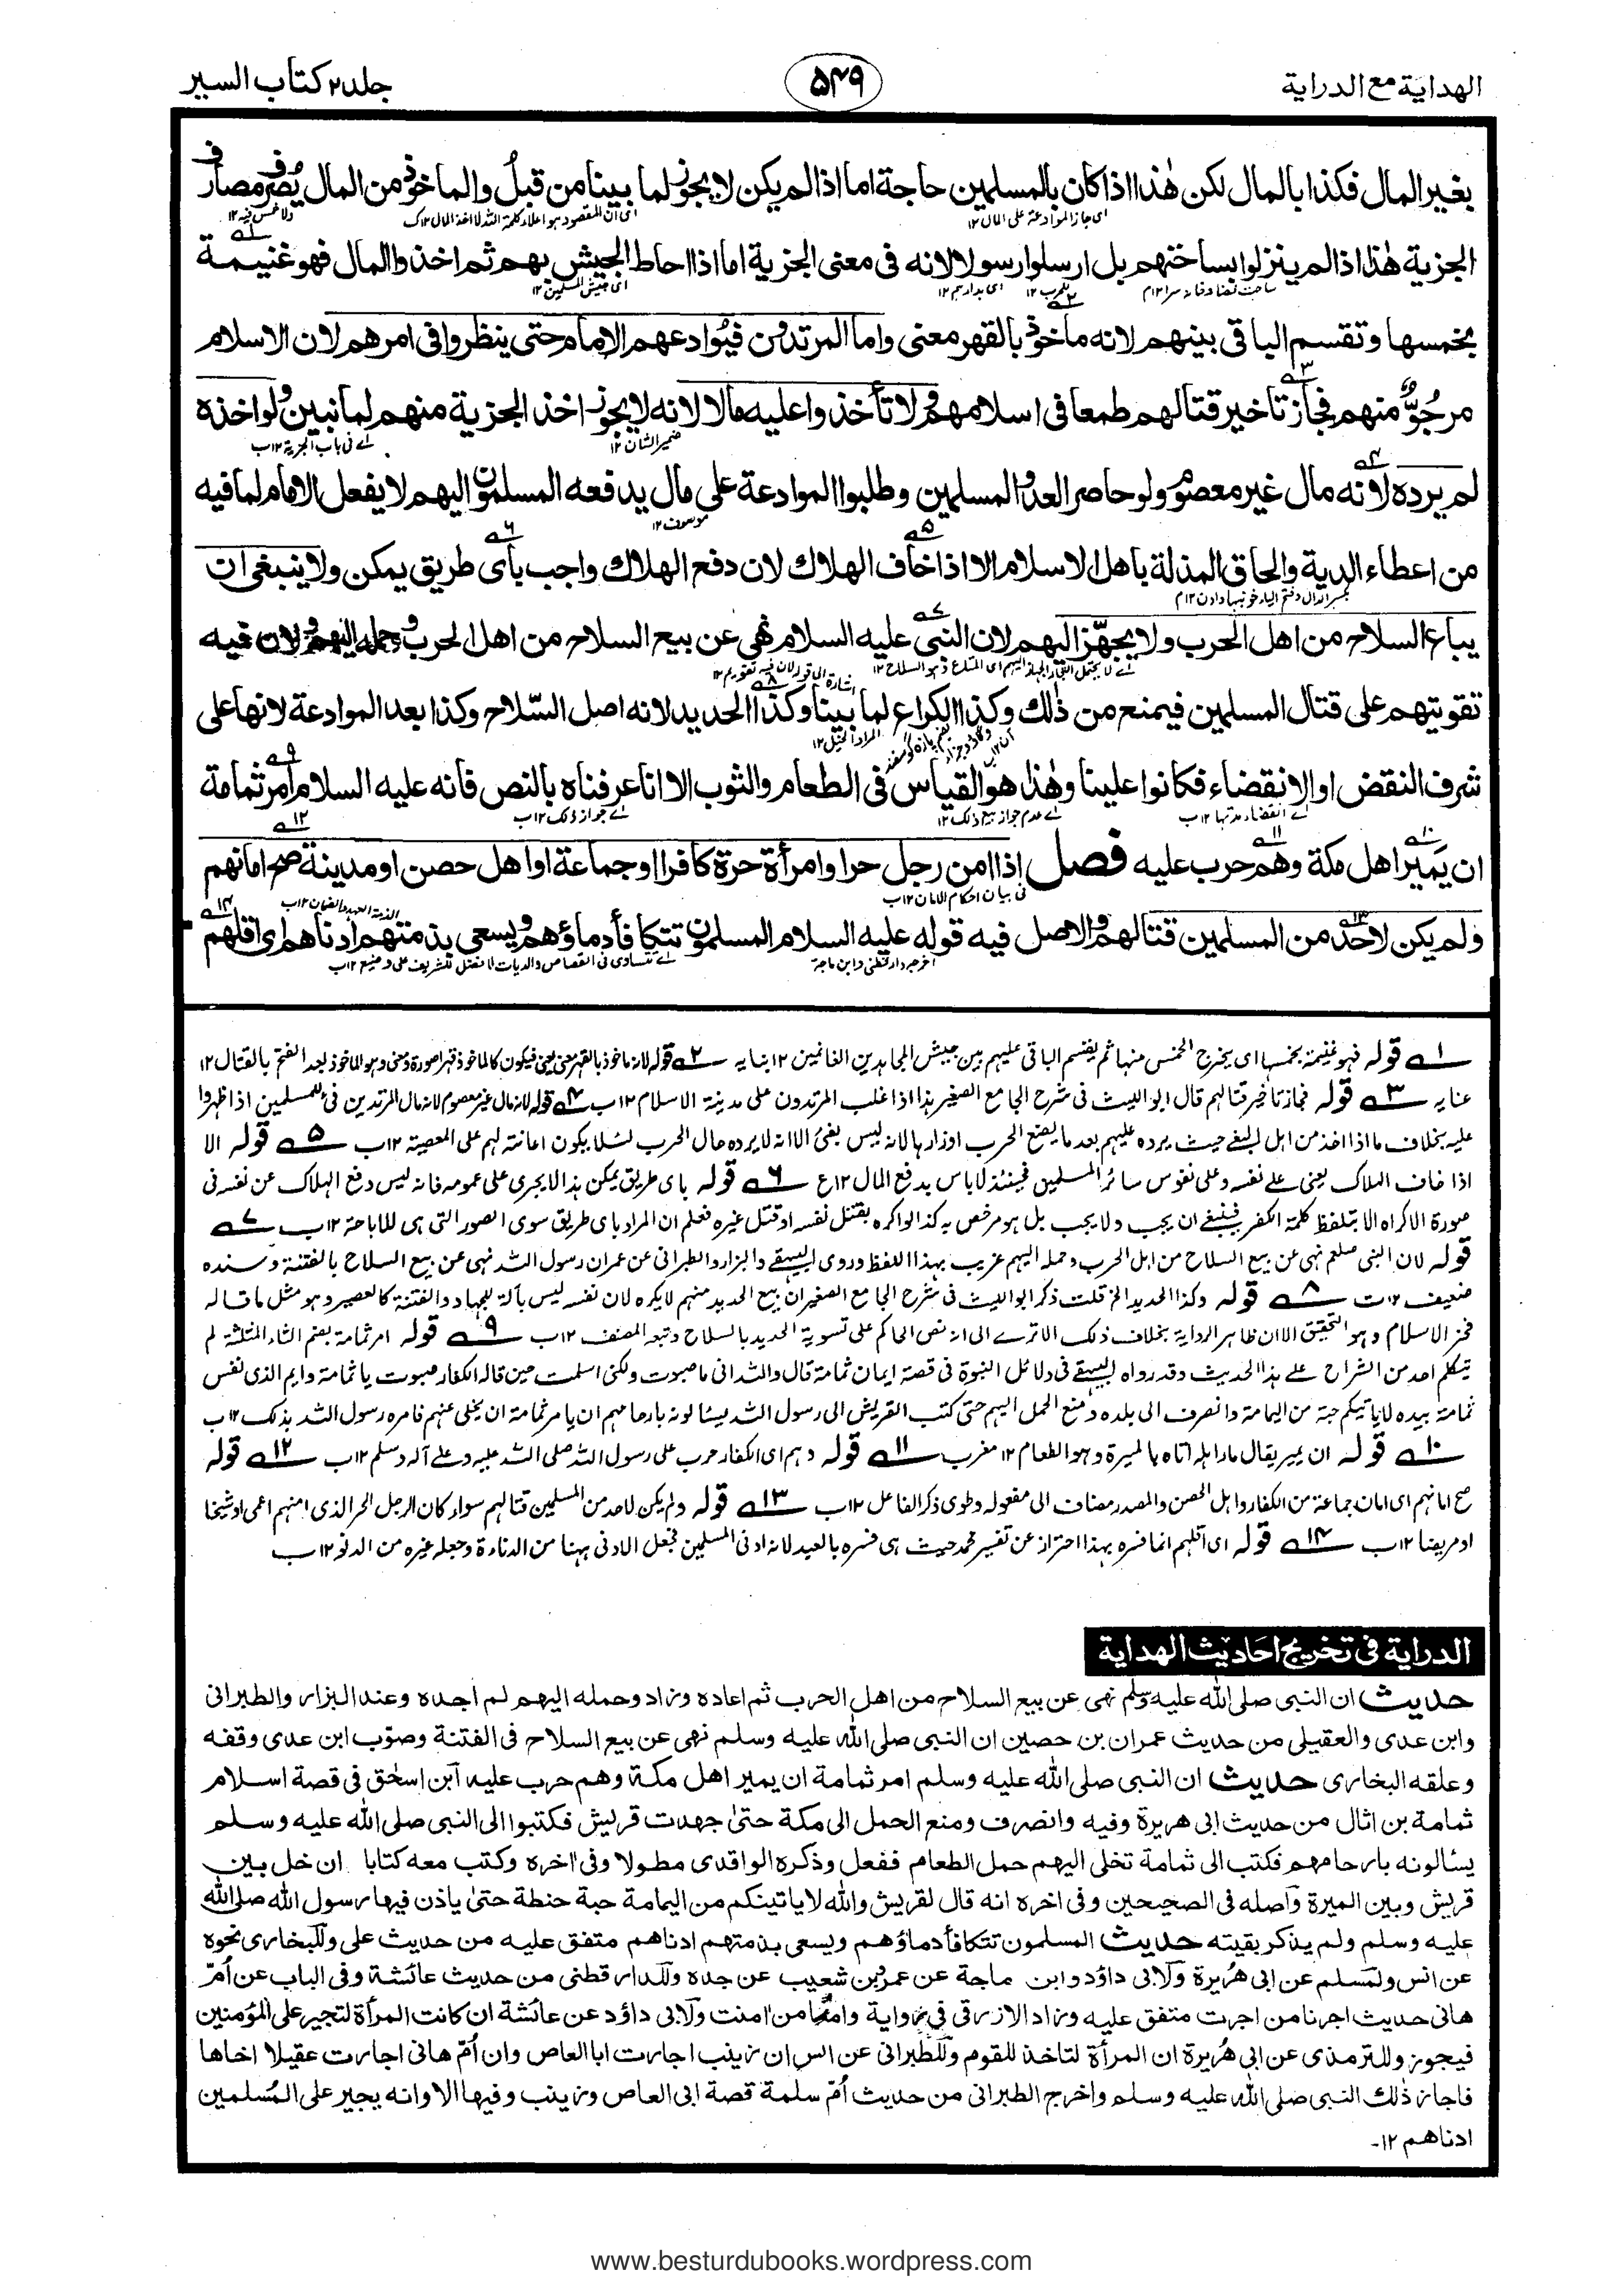 الهداية مع الدراية
۵۴۹
جلد ۲ كتاب السير
بغير المال فكذا بالمال لكن هٰذا اذا كان بالمسلمين حاجة اما اذا لم يكن لا يجوز لما بينا من قبل والماخوذ من المال يُصرف مصارف
اى جاز الموادعة على المال ١٢ اى ان المقصود هو اعلاء كلمة الله لا اخذ المال ١٢ك ولا خمس فيه ١٢
الجزية هٰذا اذا لم ينزلوا بساحتهم بل ارسلوا رسولا لانه فى معنى الجزية اما اذا احاط الجيش بهم ثم اخذوا المال فهو غنيمة
اى بدارهم ١٢ اى جيش المسلمين ١٢
يخمسها وتقسم الباقى بينهم لانه ماخوذ بالقهر معنى واما المرتدون فيُوادعهم الامام حتى ينظروا فى امرهم لان الاسلام
مرجُوٌّ منهم فجاز تاخير قتالهم طمعا فى اسلامهم ولا تأخذوا عليه مالا لانه لا يجوز اخذ الجزية منهم لما نبين ولو اخذه
ضمير الشان ١٢ اے فى باب الجزية ١٢ب
لم يرده لانه مال غير معصوم ولو حاصر العدو المسلمين وطلبوا الموادعة على مال يدفعه المسلمون اليهم لا يفعل الامام لما فيه
من اعطاء الدية والحاق المذلة باهل الاسلام الا اذا خاف الهلاك لان دفع الهلاك واجب بأى طريق يمكن ولا ينبغى ان
يباع السلاح من اهل الحرب ولا يجهّز اليهم لان النبى عليه السلام نهى عن بيع السلاح من اهل الحرب وحمله اليهم ولان فيه
تقويتهم على قتال المسلمين فيمنع من ذٰلك وكذا الكراع لما بينا وكذا الحديد لانه اصل السّلاح وكذا بعد الموادعة لانها على
المراد الخيل ١٢
شرف النقض او الانقضاء فكانوا علينا وهٰذا هو القياس فى الطعام والثوب الا انا عرفناه بالنص فانه عليه السلام امر ثمامة
اے انقضاء مدتها ١٢ب اے عدم جواز بيع ذلك ١٢ اے جواز ذلك ١٢ب
ان يَمير اهل مكة وهم حرب عليه فصل اذا امن رجل حر او امرأة حرة كافرا او جماعة او اهل حصن او مدينة صح امانهم
فى بيان احكام الامان ١٢ب
ولم يكن لاحد من المسلمين قتالهم والاصل فيه قوله عليه السلام المسلمون تتكافأ دماؤهم ويسعى بذمتهم ادناهم اى اقلهم
اخرجه دارقطنى وابن ماجة
١ے قوله فهو غنيمة يخمسها اى يخرج الخمس منها ثم يقسم الباقى عليهم بين جيش المجاهدين الغانمين ١٢ بنايه ٢ے قوله لانه ماخوذ بالقهر معنى يعنى فيكون كالماخوذ قهرا صورة ومعنى وهو الماخوذ بعد الفتح بالقتال ١٢
عنايه ٣ے قوله فجاز تاخير قتالهم قال ابو الليث فى شرح الجامع الصغير هذا اذا غلب المرتدون على مدينة الاسلام ١٢ب ٤ے قوله لانه مال غير معصوم لانه مال المرتدين فئ للمسلمين اذا ظهروا
عليه بخلاف ما اذا اخذ من اهل البغے حيث يرده عليهم بعد ما يضع الحرب اوزارها لانه ليس بفئ الا انه لا يرده حال الحرب لئلا يكون اعانة لهم على المعصية ١٢ب ٥ے قوله الا
اذا خاف الهلاك يعنى علے نفسه وعلى نفوس سائر المسلمين فحينئذ لا باس بدفع المال ١٢ع ٦ے قوله باى طريق يمكن هذا لا يجرى على عمومه فانه ليس دفع الهلاك عن نفسه فى
صورة الاكراه الا بتلفظ كلمة الكفر فينبغے ان يجب ولا يجب بل هو مرخص به كذا لو اكره بقتل نفسه او قتل غيره فعلم ان المراد باى طريق سوى الصور التى هى للاباحة ١٢ب ٧ے
قوله لان النبى صلعم نهى عن بيع السلاح من اهل الحرب وحمله اليهم غريب بهذا اللفظ وروى البيهقے والبزار والطبرانى عن عمران رسول الله نهى عن بيع السلاح بالفتنة وسنده
ضعيف ١٢ت ٨ے قوله وكذا الحديد الخ قلت ذكر ابو الليث فى شرح الجامع الصغير ان بيع الحديد منهم لا يكره لان نفسه ليس بآلة للجهاد والفتنة كالعصير وهو مثل ما قاله
فخر الاسلام وهو التحقيق الا ان ظاهر الرواية بخلاف ذلك الا ترے الى انه نص الحاكم على تسوية الحديد بالسلاح وتبعه المصنف ١٢ب ٩ے قوله امر ثمامة بضم الثاء المثلثة لم
يتكلم احد من الشراح علے هذا الحديث وقد رواه البيهقے فى دلائل النبوة فى قصة ايمان ثمامة قال والله انى ما صبوت ولكنى اسلمت حين قاله الكفار صبوت يا ثمامة وايم الذى نفس
ثمامة بيده لا ياتيكم حبة من اليمامة وانصرف الى بلده ومنع الحمل اليهم حتى كتب القريش الى رسول الله يسئالونه بارحامهم ان يامر ثمامة ان يخلى عنهم فامره رسول الله بذلك ١٢ب
١٠ے قوله ان يمير يقال مار اهله اتاه بالميرة وهو الطعام ١٢ مغرب ١١ے قوله وهم اى الكفار حرب على رسول الله صلى الله عليه وعلے آله وسلم ١٢ب ١٢ے قوله
صح امانهم اى امان جماعة من الكفار واهل الحصن والمصدر مضاف الى مفعوله وطوى ذكر الفاعل ١٢ب ١٣ے قوله ولم يكن لاحد من المسلمين قتالهم سواء كان الرجل الحر الذى امنهم اعمى او شيخا
او مريضا ١٢ب ١٤ے قوله اى اقلهم انما فسره بهذا احترازا عن تفسير محمد حيث هى فسره بالعبد لانه ادنى المسلمين فجعل الادنى ههنا من الدناءة وجعله غيره من الدنو ١٢ب
الدراية فى تخريج احاديث الهداية
حديث ان النبى صلى الله عليه وسلم نهى عن بيع السلاح من اهل الحرب ثم اعاده وزاد وحمله اليهم لم اجده وعند البزار والطبرانى
وابن عدى والعقيلى من حديث عمران بن حصين ان النبى صلى الله عليه وسلم نهى عن بيع السلاح فى الفتنة وصوّب ابن عدى وقفه
وعلقه البخارى حديث ان النبى صلى الله عليه وسلم امر ثمامة ان يمير اهل مكة وهم حرب عليه ابن اسحٰق فى قصة اسلام
ثمامة بن اثال من حديث ابى هريرة وفيه وانصرف ومنع الحمل الى مكة حتىٰ جهدت قريش فكتبوا الى النبى صلى الله عليه وسلم
يسئالونه بارحامهم فكتب الى ثمامة تخلى اليهم حمل الطعام ففعل وذكره الواقدى مطولا وفى اخره وكتب معه كتابا ان خل بين
قريش وبين الميرة واصله فى الصحيحين وفى اخره انه قال لقريش والله لا ياتينكم من اليمامة حبة حنطة حتىٰ ياذن فيها رسول الله صلى الله
عليه وسلم ولم يذكر بقيته حديث المسلمون تتكافأ دماؤهم ويسعى بذمتهم ادناهم متفق عليه من حديث على وللبخارى نحوه
عن انس ولمسلم عن ابى هُريرة ولابى داؤد وابن ماجة عن عمرو بن شعيب عن جده وللدارقطنى من حديث عائشة وفى الباب عن اُمّ
هانى حديث اجرنا من اجرت متفق عليه وزاد الازرقى فى رواية وامنا من امنت ولابى داؤد عن عائشة ان كانت المرأة لتجير على المؤمنين
فيجوز وللترمذى عن ابى هُريرة ان المرأة لتاخذ للقوم وللطبرانى عن انس ان زينب اجارت ابا العاص وان اُمّ هانى اجارت عقيلا اخاها
فاجاز ذٰلك النبى صلى الله عليه وسلم واخرج الطبرانى من حديث اُمّ سلمة قصة ابى العاص وزينب وفيها الا وانه يجير على المُسلمين
ادناهم ١٢-
www.besturdubooks.wordpress.com